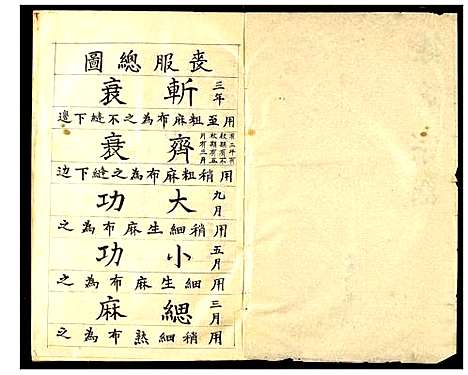 喪服總圖
斬衰 三年
用至粗麻布為之不縫下邊
齊衰 有三年有杖期有不杖期有五月有三月
用稍粗麻布為之縫下边
大功 九月
用稍細生麻布為之
小功 五月
用細生麻布為之
緦麻 三月
用稍細熟布為之